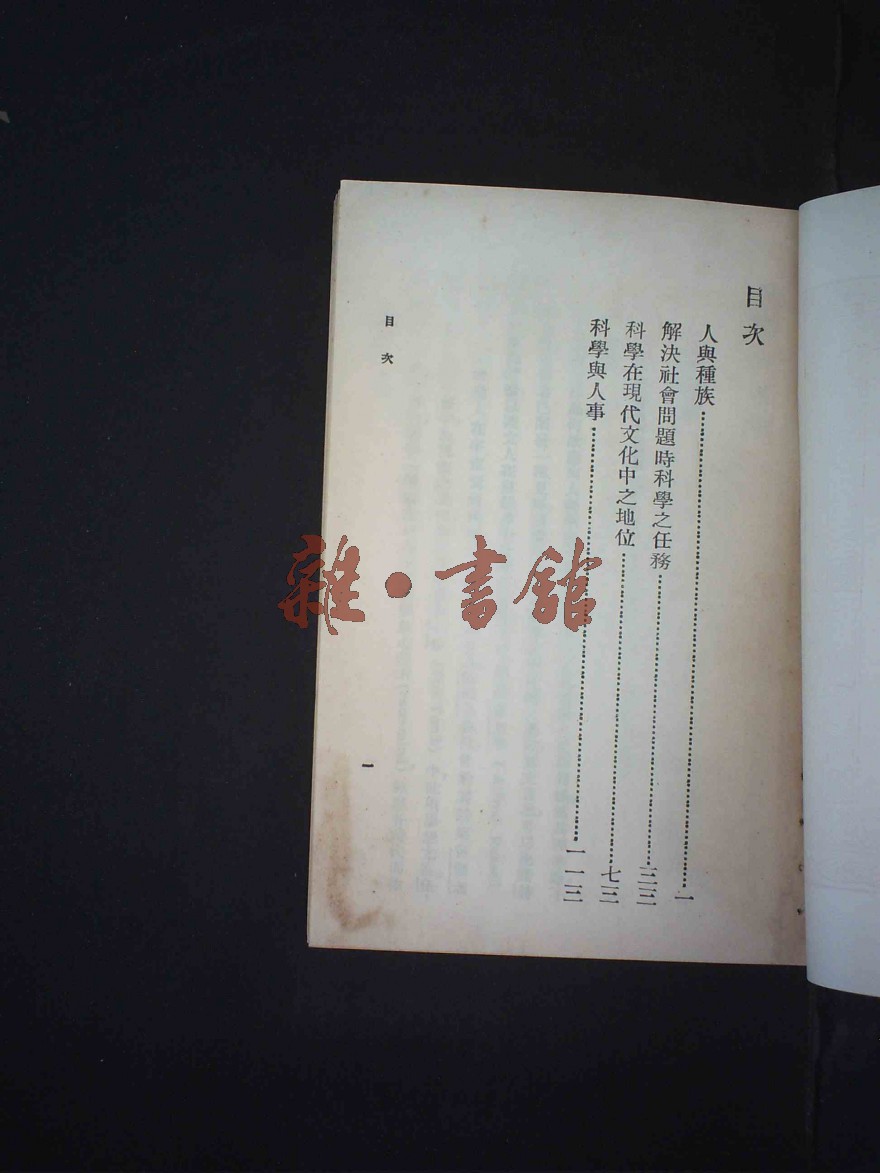 目次
人與種族……一
解決社會問題時科學之任務……三三
科學在現代文化中之地位……七三
科學與人事……一一三
目次
一
雜·書館